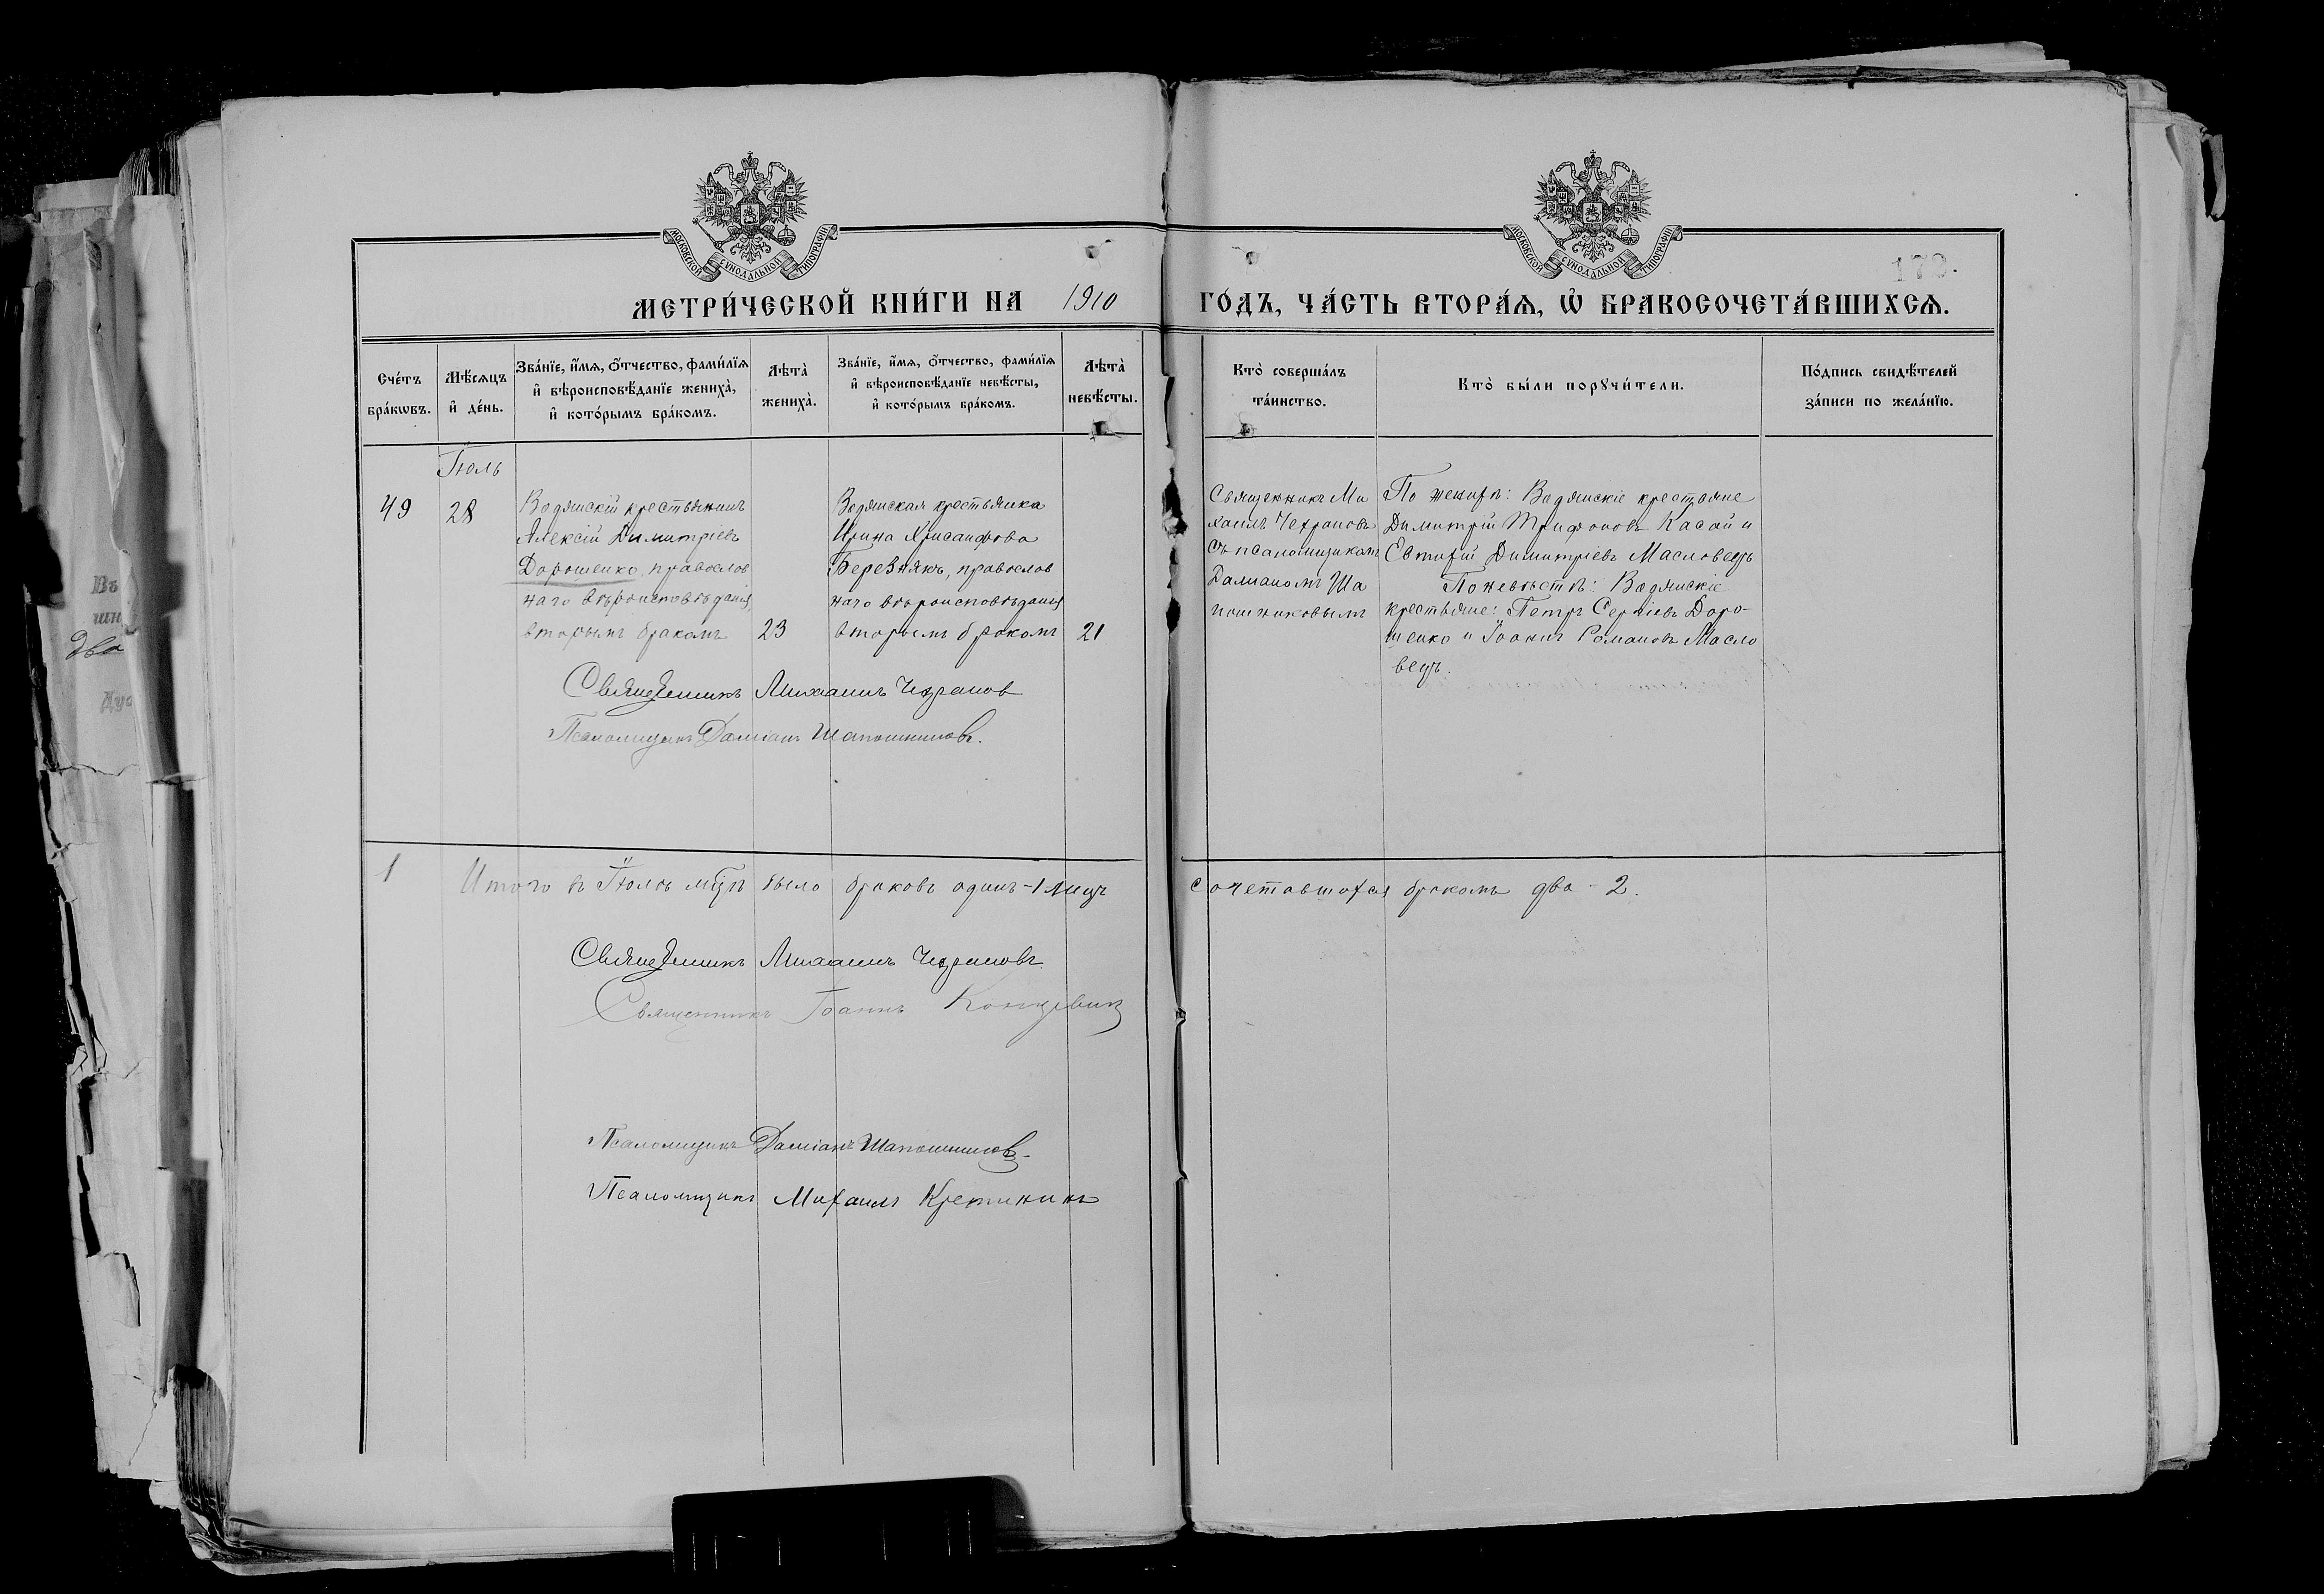 МОСКОВСКОЙ СУНОДАЛЬНОЙ ТИПОГРАФІИ
МОСКОВСКОЙ СУНОДАЛЬНОЙ ТИПОГРАФІИ
МЕТРИ́ЧЕСКОЙ КНИ́ГИ НА 1910 ГО́ДЪ, ЧА́СТЬ ВТОРА́Ѧ, Ѽ БРАКОСОЧЕТА́ВШИХСѦ.
Сче́тъ
бра́кѡвъ.
Мѣ́сѧцъ
и҆ де́нь.
Зва́нїе, и҆́мѧ, ѻ҆́тчество, фами́лїѧ
и҆ вѣроисповѣ́данїе жениха̀,
и҆ кото́рымъ бра́комъ.
Лѣта̀
жениха̀.
Зва́нїе, и҆́мѧ, ѻ҆́тчество, фами́лїѧ
и҆ вѣроисповѣ́данїе невѣ́сты,
и҆ кото́рымъ бра́комъ.
Лѣта̀
невѣ́сты.
Кто̀ соверша́лъ
та́инство.
Кто̀ бы́ли порꙋчи́тели.
По́дпись свидѣ́телей
за́писи по жела́нїю.
Іюль
49
28
Водянскій крестьянинъ
Алексій Димитріевъ
Дорошенко, православ
наго вѣроисповѣданія
вторымъ бракомъ
23
Водянская крестьянка
Ирина Хрисанфова
Березнякъ, православ
наго вѣроисповѣданія
вторымъ бракомъ
21
Священникъ Ми
хаилъ Чехрановъ
съ псаломщикомъ
Даміаномъ Ша
пошниковымъ
По женихѣ: Водянскіе крестьяне
Димитрій Трифоновъ Касай и
Евтихій Димитріевъ Масловецъ
По невѣстѣ: Водянскіе
крестьяне: Петръ Сергіевъ Доро-
шенко и Іоаннъ Романовъ Масло
вецъ.
Священникъ Михаилъ Чехранов
Псаломщикъ Даміанъ Шапошниковъ.
1
Итого въ Іюлѣ мцѣ было браковъ одинъ-1 лицъ сочетавшихся бракомъ два - 2.
Священникъ Михаилъ Чехрановъ
Священникъ Іоаннъ
Псаломщикъ Даміанъ Шапошниковъ.
Псаломщикъ Михаилъ Кретининъ
Въ
два